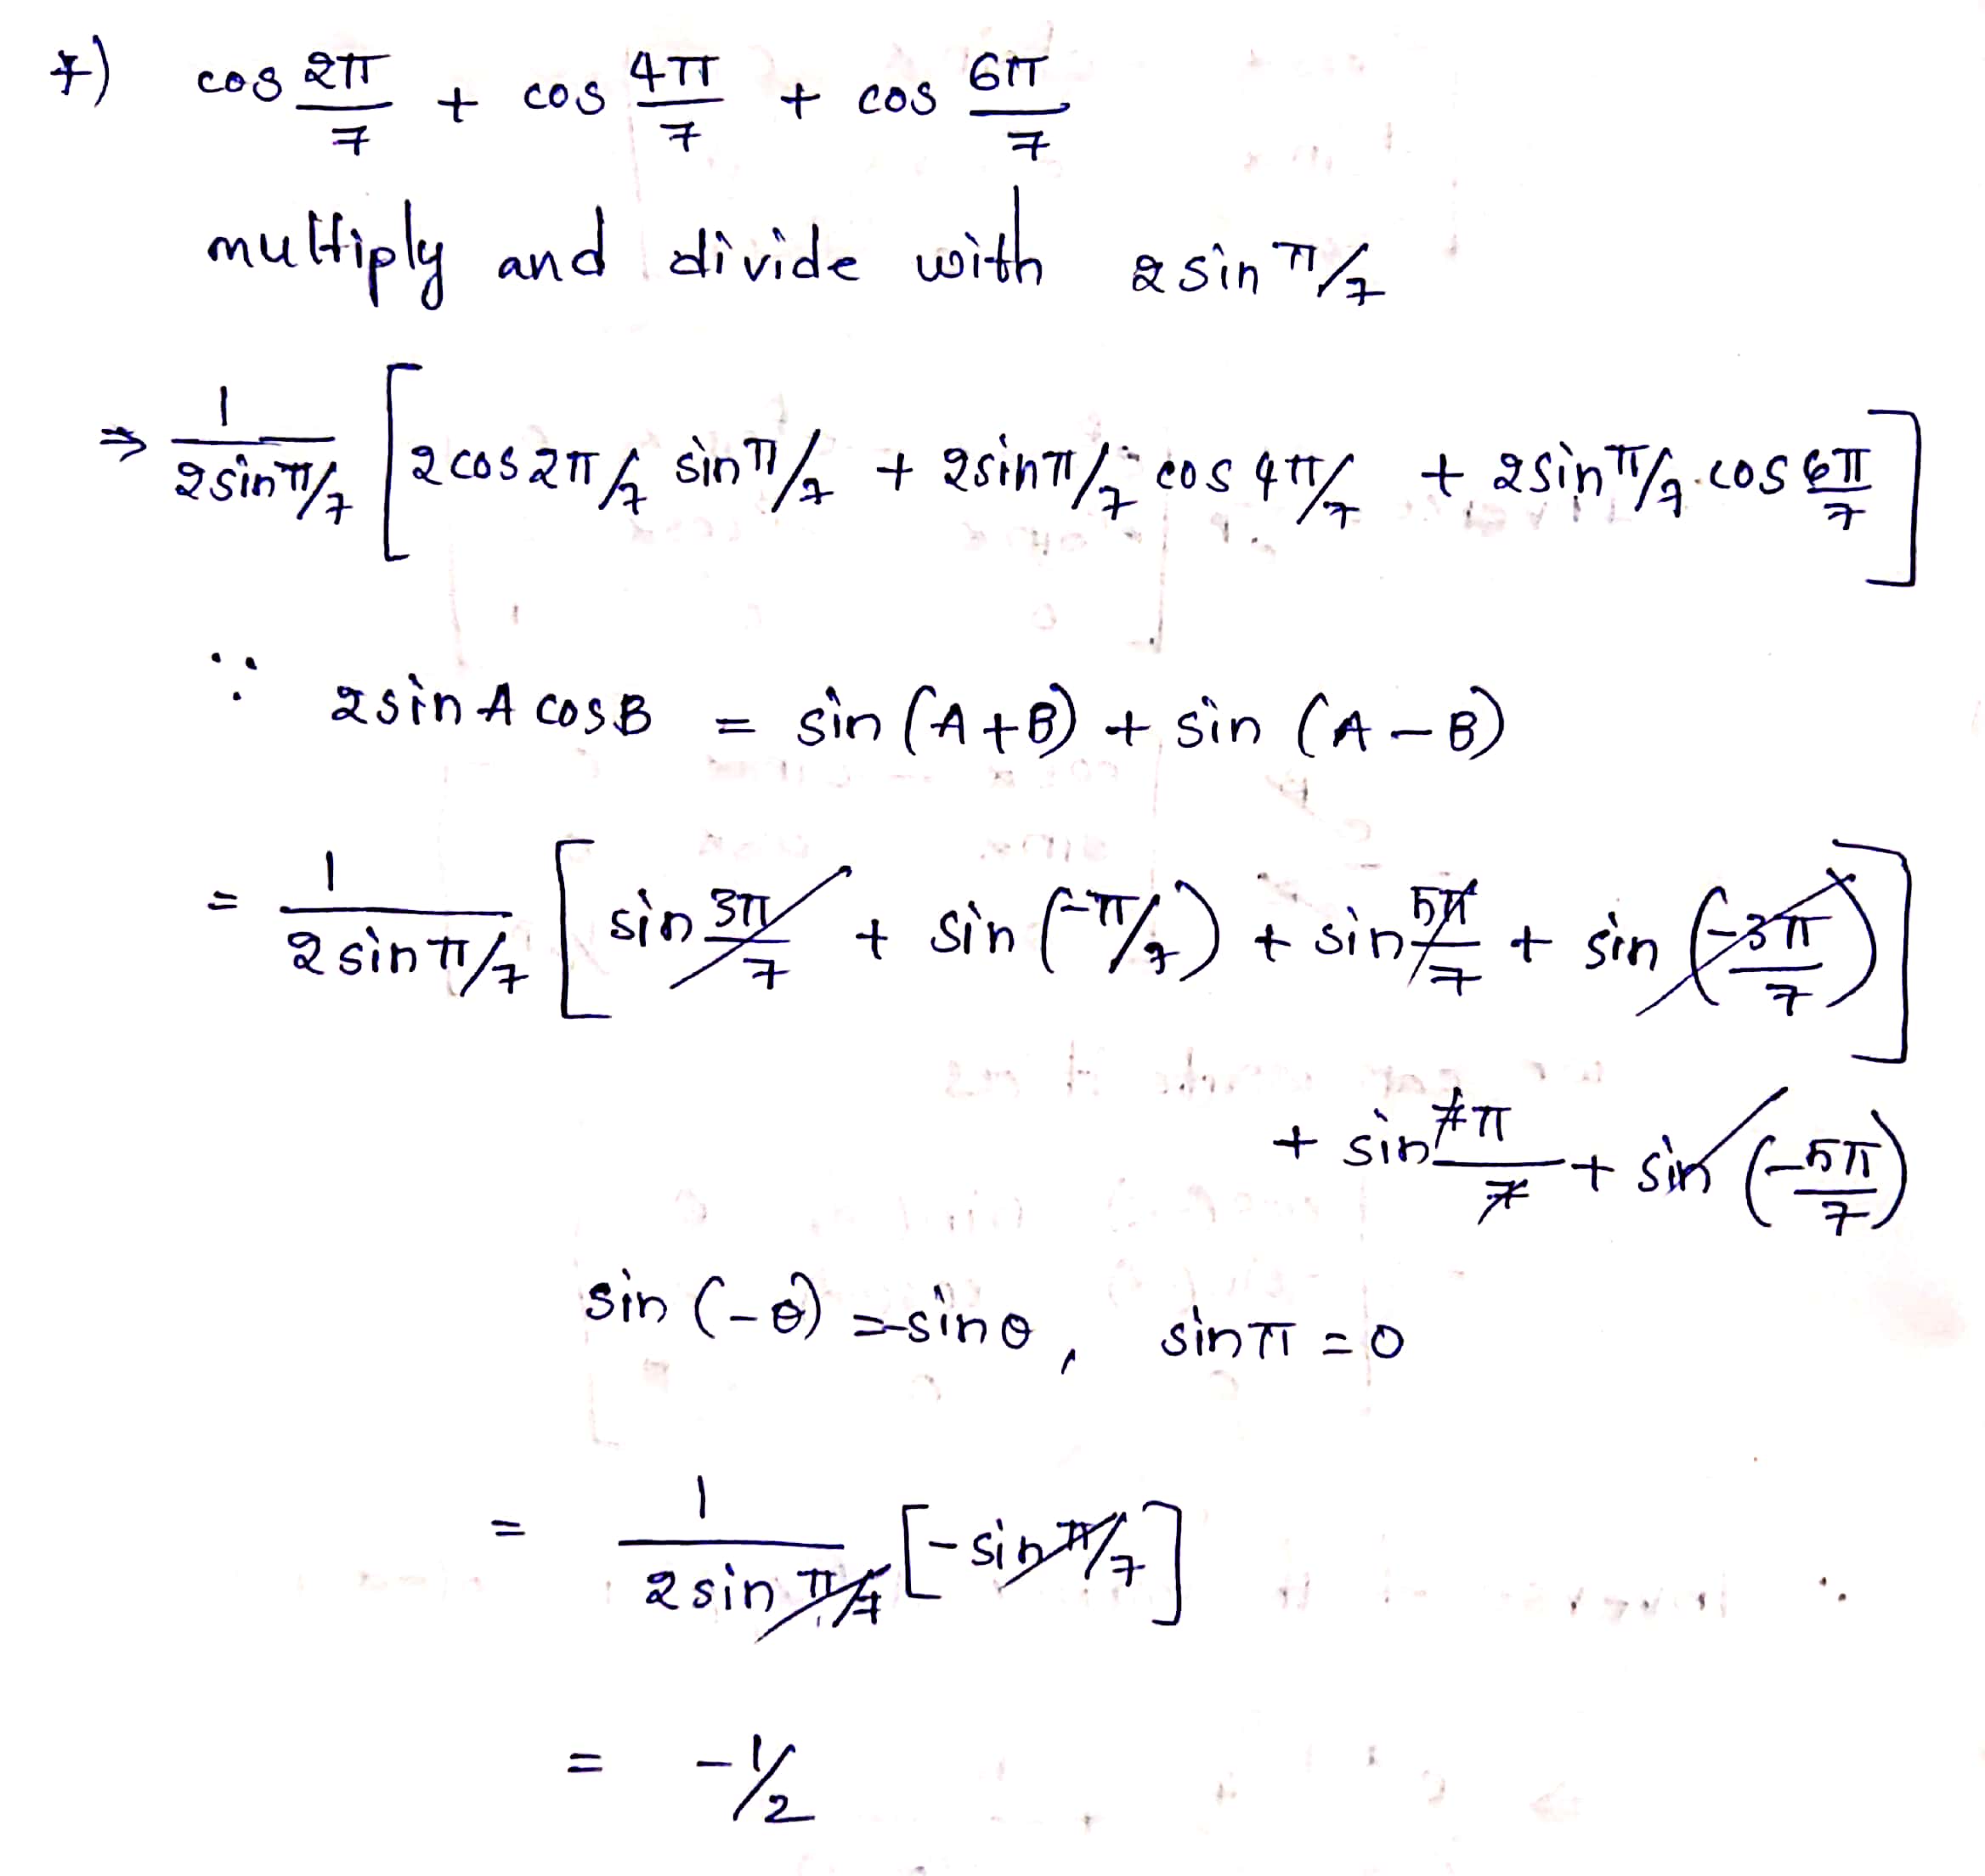 7) cos 2π/7 + cos 4π/7 + cos 6π/7
multiply and divide with 2 sin π/7
⇒ 1/(2 sin π/7) [2 cos 2π/7 sin π/7 + 2 sin π/7 cos 4π/7 + 2 sin π/7 . cos 6π/7]
∵ 2 sin A cos B = sin (A+B) + sin (A−B)
= 1/(2 sin π/7) [sin 3π/7 + sin (−π/7) + sin 5π/7 + sin (−3π/7)]
+ sin 7π/7 + sin (−5π/7)
sin (−θ) = −sin θ, sin π = 0
= 1/(2 sin π/7) [−sin π/7]
= −1/2